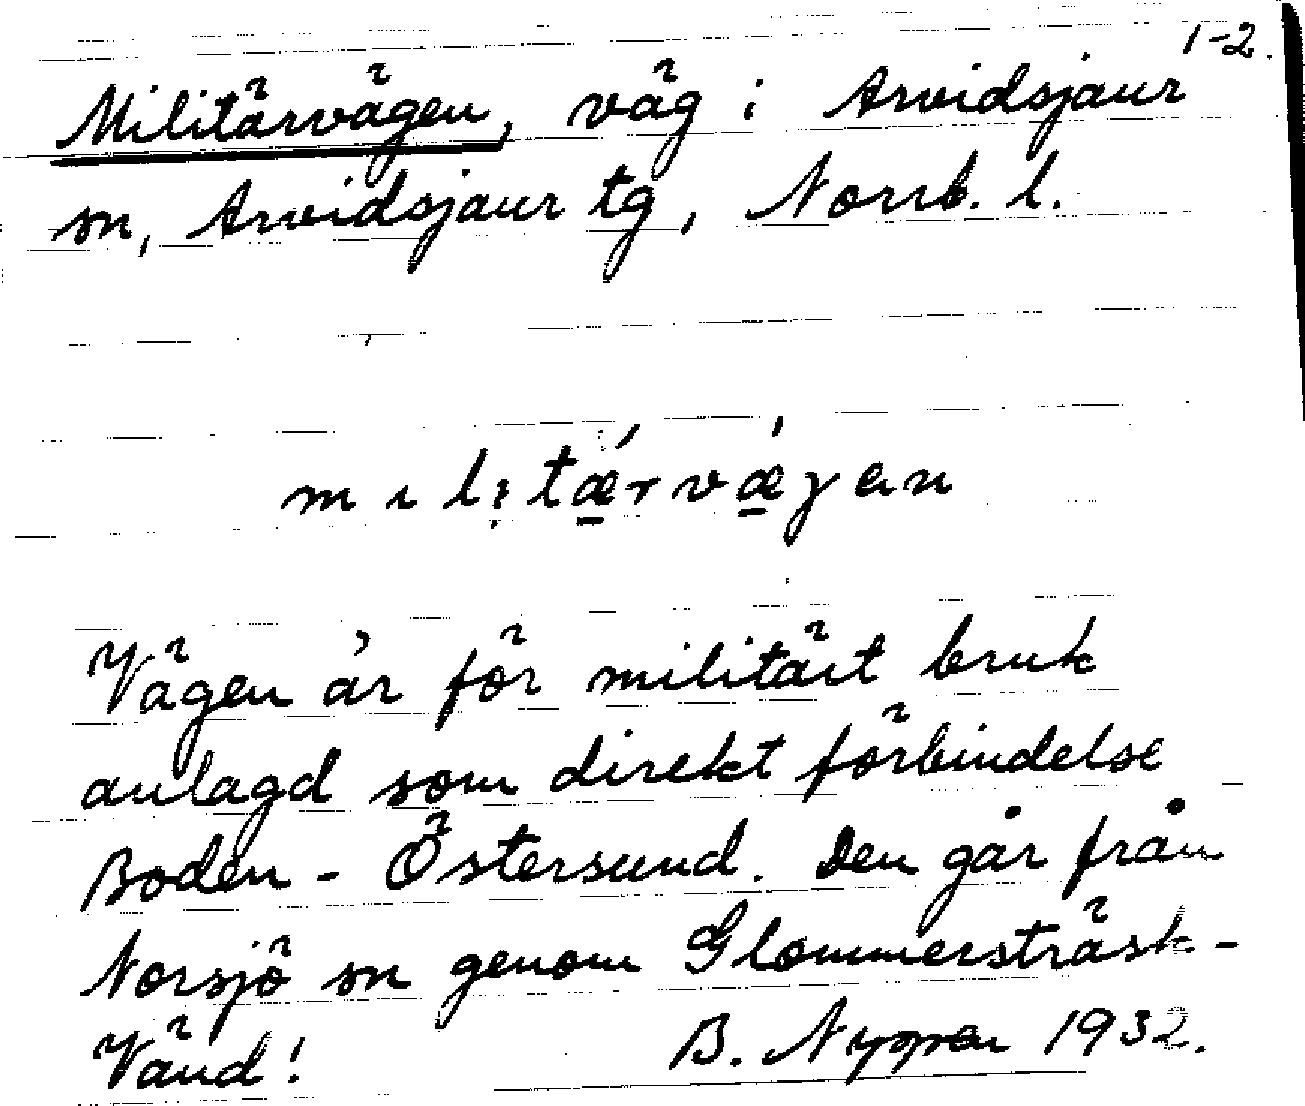 1-2.
Militärvägen, väg i Arvidsjaur
sn, Arvidsjaur tg, Norrb. l.
militǽrvǽgen
Vägen är för militärt bruk
anlagd som direkt förbindelse
Boden - Östersund. Den går från
Norsjö sn genom Glommersträsk-
Vänd! B. Nyman 1932.